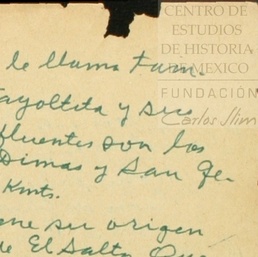 CENTRO DE
ESTUDIOS
DE HISTORIA
DE MEXICO
FUNDACIÓN
Carlos Slim
le llama Tum.
Tayoltita y sus
fluentes son los
Dimas y San Ge-
Kmts.
ne su origen
de El Salto, Que